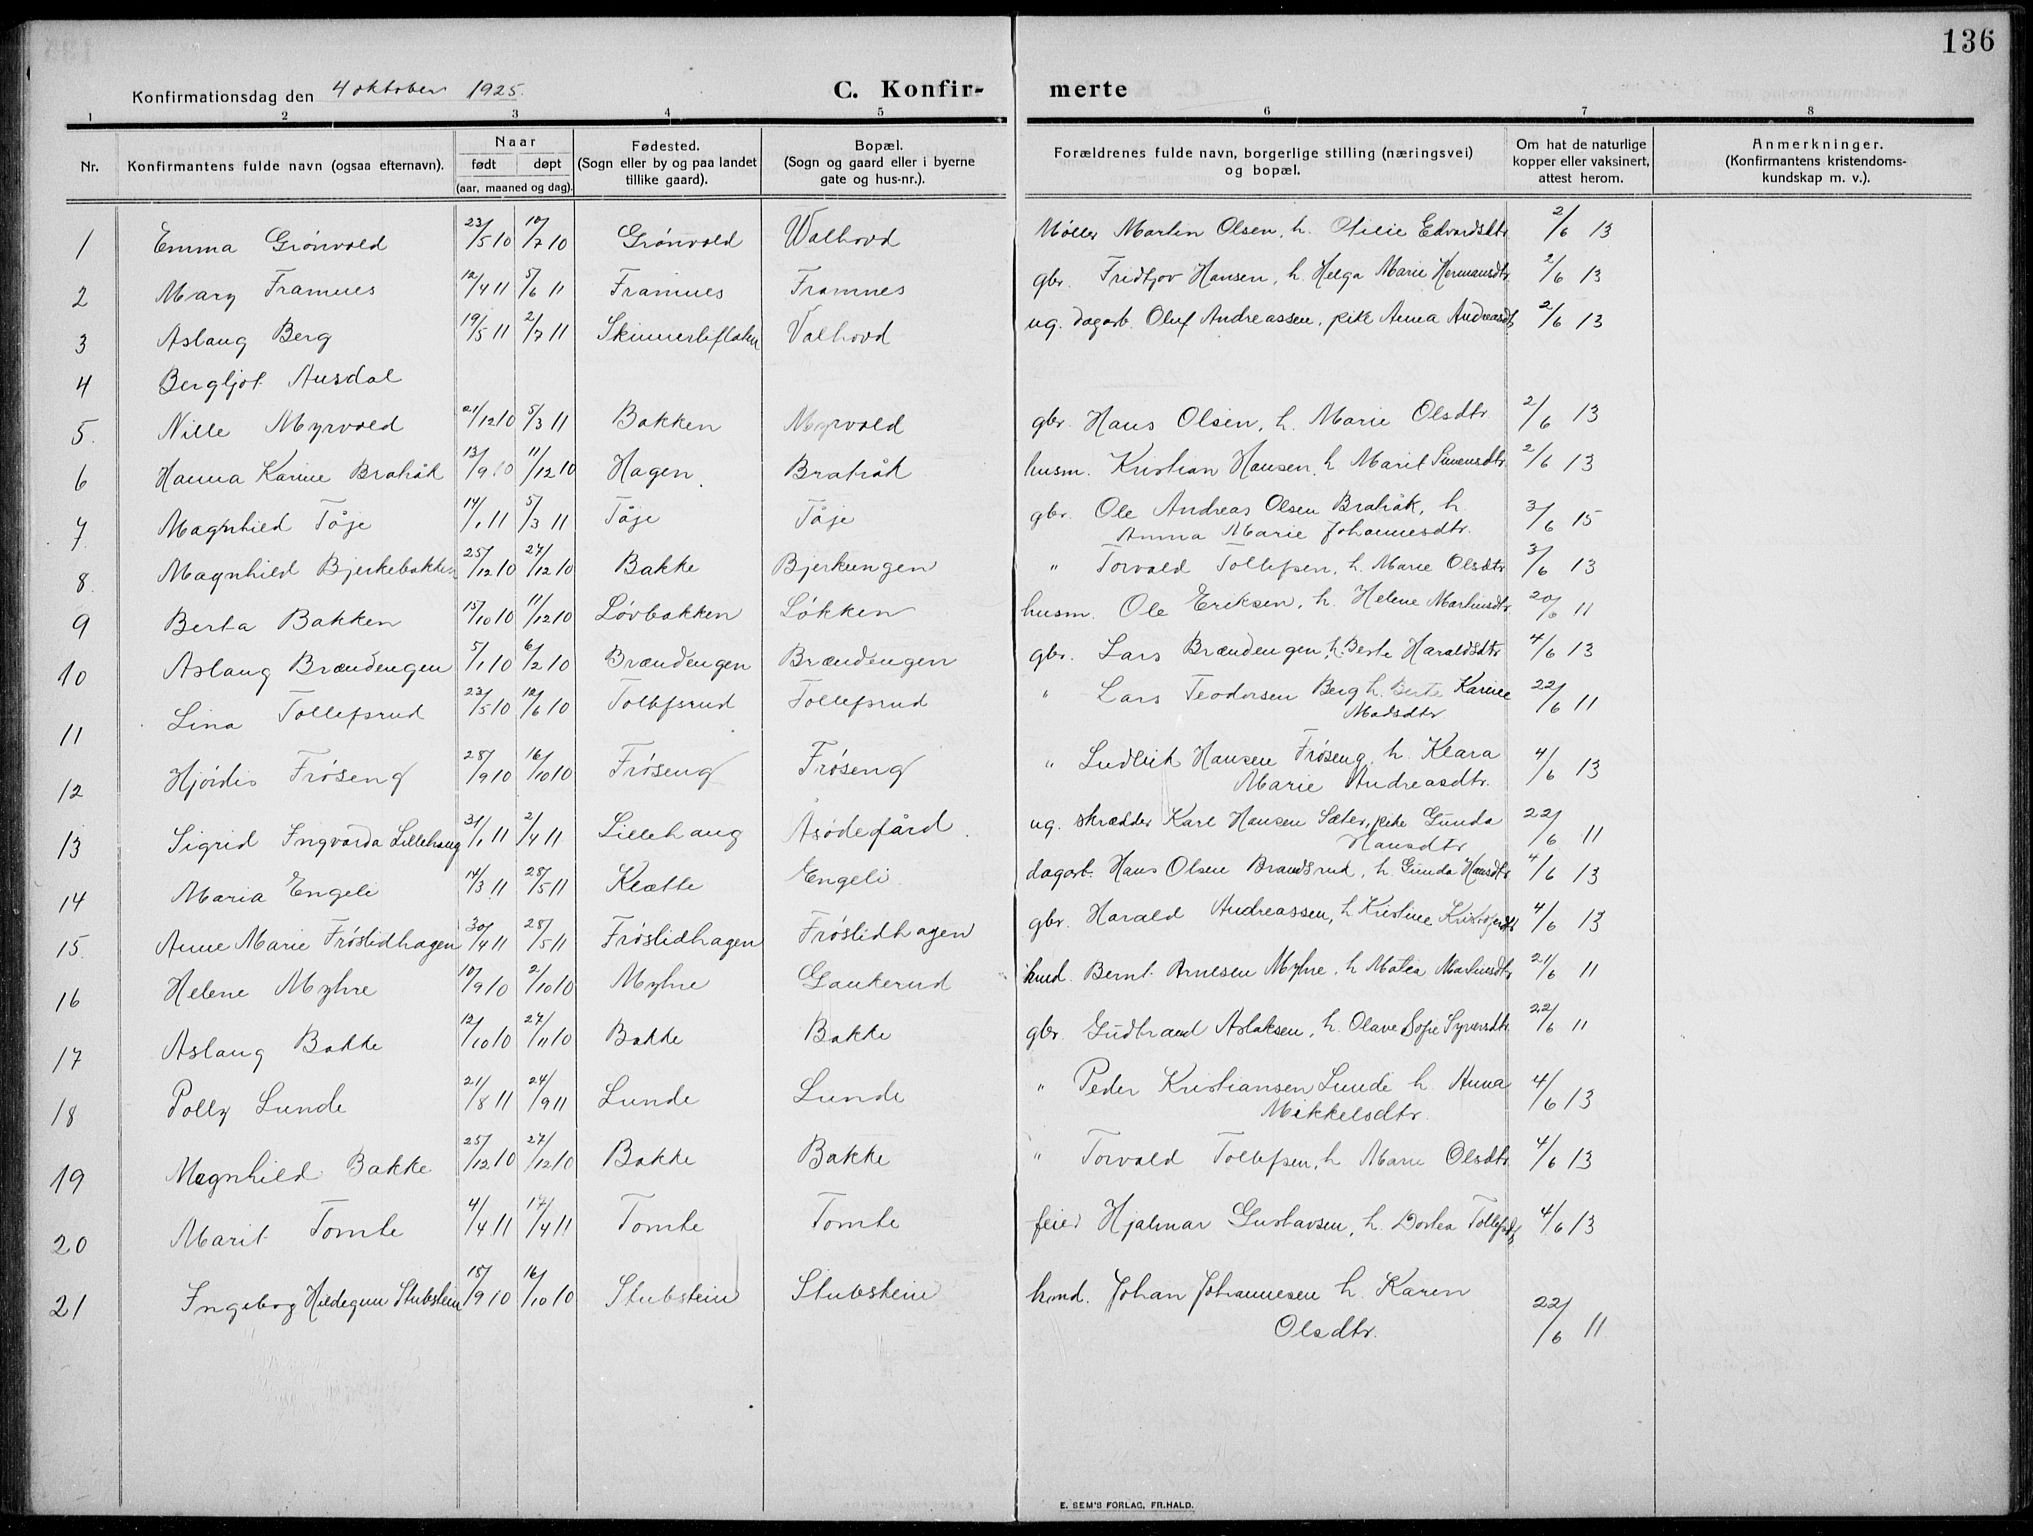 136
Konfirmationsdag den 4 oktober 1925.
C. Konfir- merte
1 2 3 4 5 6 7 8
Nr. Konfirmantens fulde navn (ogsaa efternavn). Naar født døpt (aar, maaned og dag). Fødested. (Sogn eller by og paa landet tillike gaard). Bopæl. (Sogn og gaard eller i byerne gate og hus-nr.). Forældrenes fulde navn, borgerlige stilling (næringsvei) og bopæl. Om hat de naturlige kopper eller vaksinert, attest herom. Anmerkninger. (Konfirmantens kristendoms- kundskap m. v.).
1 Emma Grönvold 23/5 10 10/7 10 Grönvold Valhovd Møller Martin Olsen, h. Otilie Edvardsdtr 2/6 13
2 Mary Framnes 12/4 11 5/6 11 Framnes Framnes gbr. Fridtjov Hansen, h. Helga Marie Hermansdtr 2/6 13
3 Aslaug Berg 19/5 11 2/7 11 Skinnerlifloten Valhovd ug. dagarb. Oluf Andreassen, pike Anna Andreasdtr 2/6 13
4 Bergljot Ausdal
5. Nille Myrvold 21/12 10 5/3 11 Bakken Myrvold gbr. Hans Olsen, h. Marie Olsdtr 2/6 13
6 Hanna Karine Bratråk 13/9 10 11/12 10 Hagen Bratråk husm. Kristian Hansen, h Marit Simensdtr 2/6 13
7. Magnhild Tåje 14/1 11 5/3 11 Tåje Tåje gbr. Ole Andreas Olsen Bratråk, h
Anna Marie Johannesdtr. 3/6 15
8. Magnhild Bjerkebakken 25/12 10 27/12 10 Bakke Bjerkengen " Torvald Tollefsen, h. Marie Olsdtr 3/6 13
9 Berta Bakken 15/10 10 11/12 10 Løvbakken Løkken husm. Ole Eriksen, h. Helene Martinsdtr 20/6 11
10 Aslaug Brændengen 5/1 10 6/2 10 Brændengen Brændengen gbr. Lars Brændengen, h. Berte Haraldsdtr 4/6 13
11 Lina Tollefsrud 23/5 10 12/6 10 Tollefsrud Tollefsrud " Lars Teodorsen Berg h. Berte Karine
Madsdtr 22/6 11
12 Hjördis Fröseng 28/9 10 16/10 10 Fröseng Fröseng " Ludvik Hansen Fröseng, h. Klara
Marie Andreasdtr. 4/6 13
13 Sigrid Ingvarda Lillehaug 31/1 11 2/4 11 Lillehaug Åsødegård ug. skrædder Karl Hansen Sæter, pike Gunda
Hansdtr 22/6 11
14 Maria Engeli 14/3 11 28/5 11 Klætte Engeli dagarb. Hans Olsen Brandsrud, h. Gunda Hansdtr 4/6 13
15. Anne Marie Fröslidhagen 30/4 11 28/5 11 Fröslidhagen Fröslidhagen gbr. Harald Andreassen, h. Kristine 4/6 13
16 Helene Myhre 10/9 10 2/10 10 Myhre Gaukerud Bernt Arnesen Myhre, h Matea Martinsdtr 21/6 11
17 Aslaug Bakke 12/10 10 27/11 10 Bakke Bakke gbr. Gudbrand Aslaksen, h. Olave Sofie Syversdtr 22/6 11
18 Polly Lunde 21/8 11 24/9 11 Lunde Lunde " Peder Kristiansen Lunde h. Anna
Mikkelsdtr. 4/6 13
19 Magnhild Bakke 25/12 10 27/12 10 Bakke Bakke " Torvald Tollefsen, h Marie Olsdtr 4/6 13
20 Marit Tomte 4/4 11 17/4 11 Tomte Tomte feier Hjalmar Gustavsen, h. Dortea Tollefsdtr 4/6 13
21 Ingeborg Hildegun Stubstein 18/9 10 16/10 10 Stubstein Stubstein Johan Johannesen h. Karen
Olsdtr. 22/6 11
E. SEM'S FORLAG, FR.HALD.